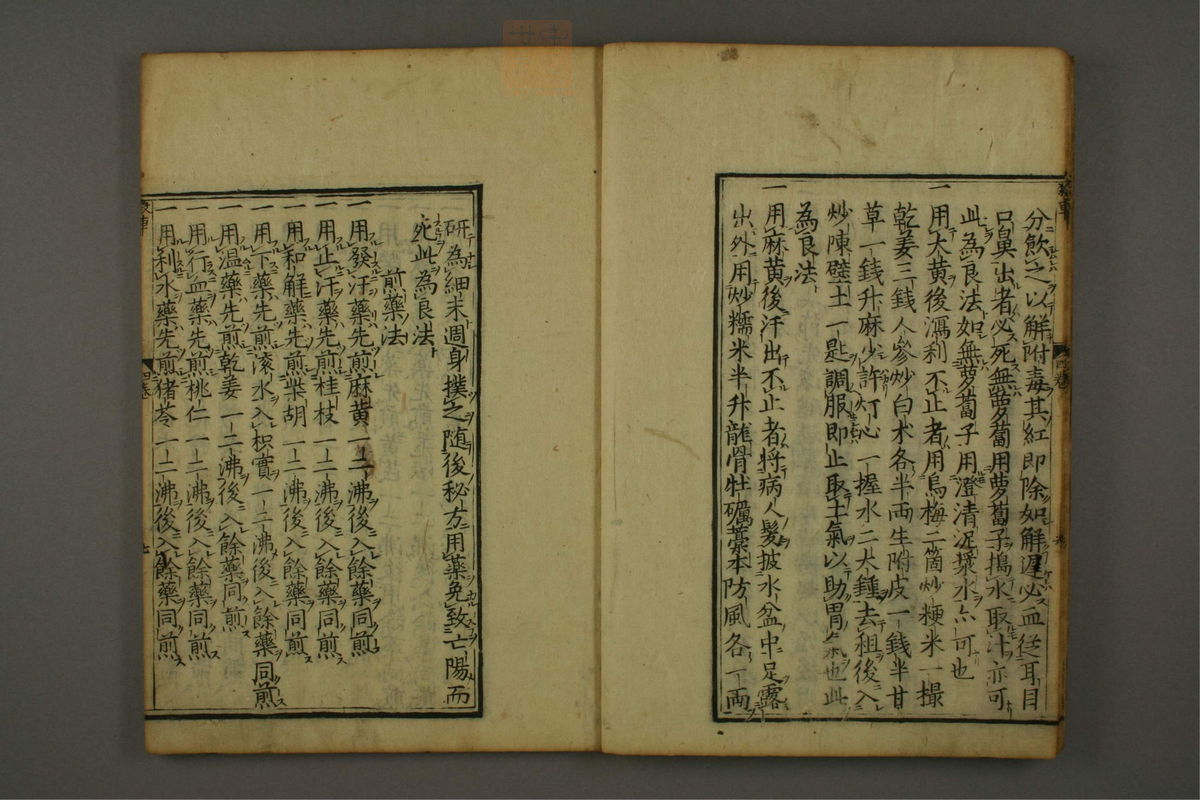 分飲之以解附毒其紅即除如解遲必血從耳目
口鼻出者必死無蘿蔔用蘿蔔子搗水取汁亦可
此為良法如無蘿蔔子用澄清泥漿水亦可也
一用大黃後瀉利不止者用烏梅二箇炒粳米一撮
乾姜三錢人參炒白朮各半兩生附皮一錢半甘
草一錢升麻少許灯心一握水二大鍾去柤後入
炒陳壁土一匙調服即止取土氣以助胃氣也此
為良法
一用麻黃後汗出不止者將病人髮披水盆中足露
出外用炒糯米半升龍骨牡礪藁本防風各一両
研為細末週身撲之随後秘方用藥免致亡陽而
死此為良法
煎藥法
一用發汗藥先煎麻黃一二沸後入餘藥同煎
一用止汗藥先煎桂枝一二沸後入餘藥同煎
一用和解藥先煎柴胡一二沸後入餘藥同煎
一用下藥先煎滾水入枳實一二沸後入餘藥同煎
一用温藥先煎乾姜一二沸後入餘藥同煎
一用行血藥先煎桃仁一二沸後入餘藥同煎
一用利水藥先煎猪苓一二沸後入餘藥同煎